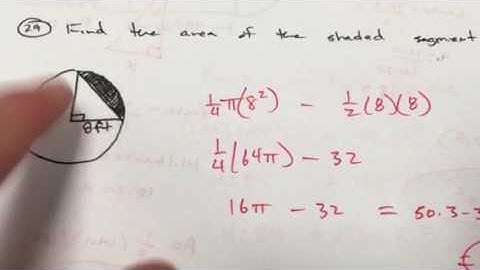 29 Find the area of the shaded segment
8ft
1/4 π(8²) - 1/2 (8)(8)
1/4 (64π) - 32
16π - 32 = 50.3-3